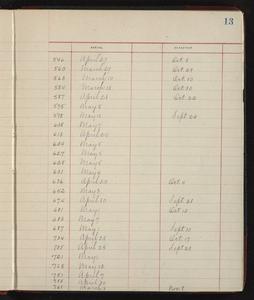 13
ARRIVAL DEPARTURE
546 April 27 Oct. 8
560 March 29 Oct. 29
568 March 10 Oct. 30
580 March 18 Oct. 30
587 April 28 Oct. 22
595 May 5
598 May 11 Sept. 24
608 May 7
618 April 30
624 May 5
627 May 3
628 May 5
631 May 9
636 April 30 Oct. 4
652 May 3
676 April 30 Sept. 28
681 May 1 Oct. 12
683 May 7
687 May 1 Sept. 30
704 April 28 Oct. 17
705 April 28 Sept. 28
721 May 1
758 May 18
751 April 7
755 April 30
761 March 3 Nov. 1